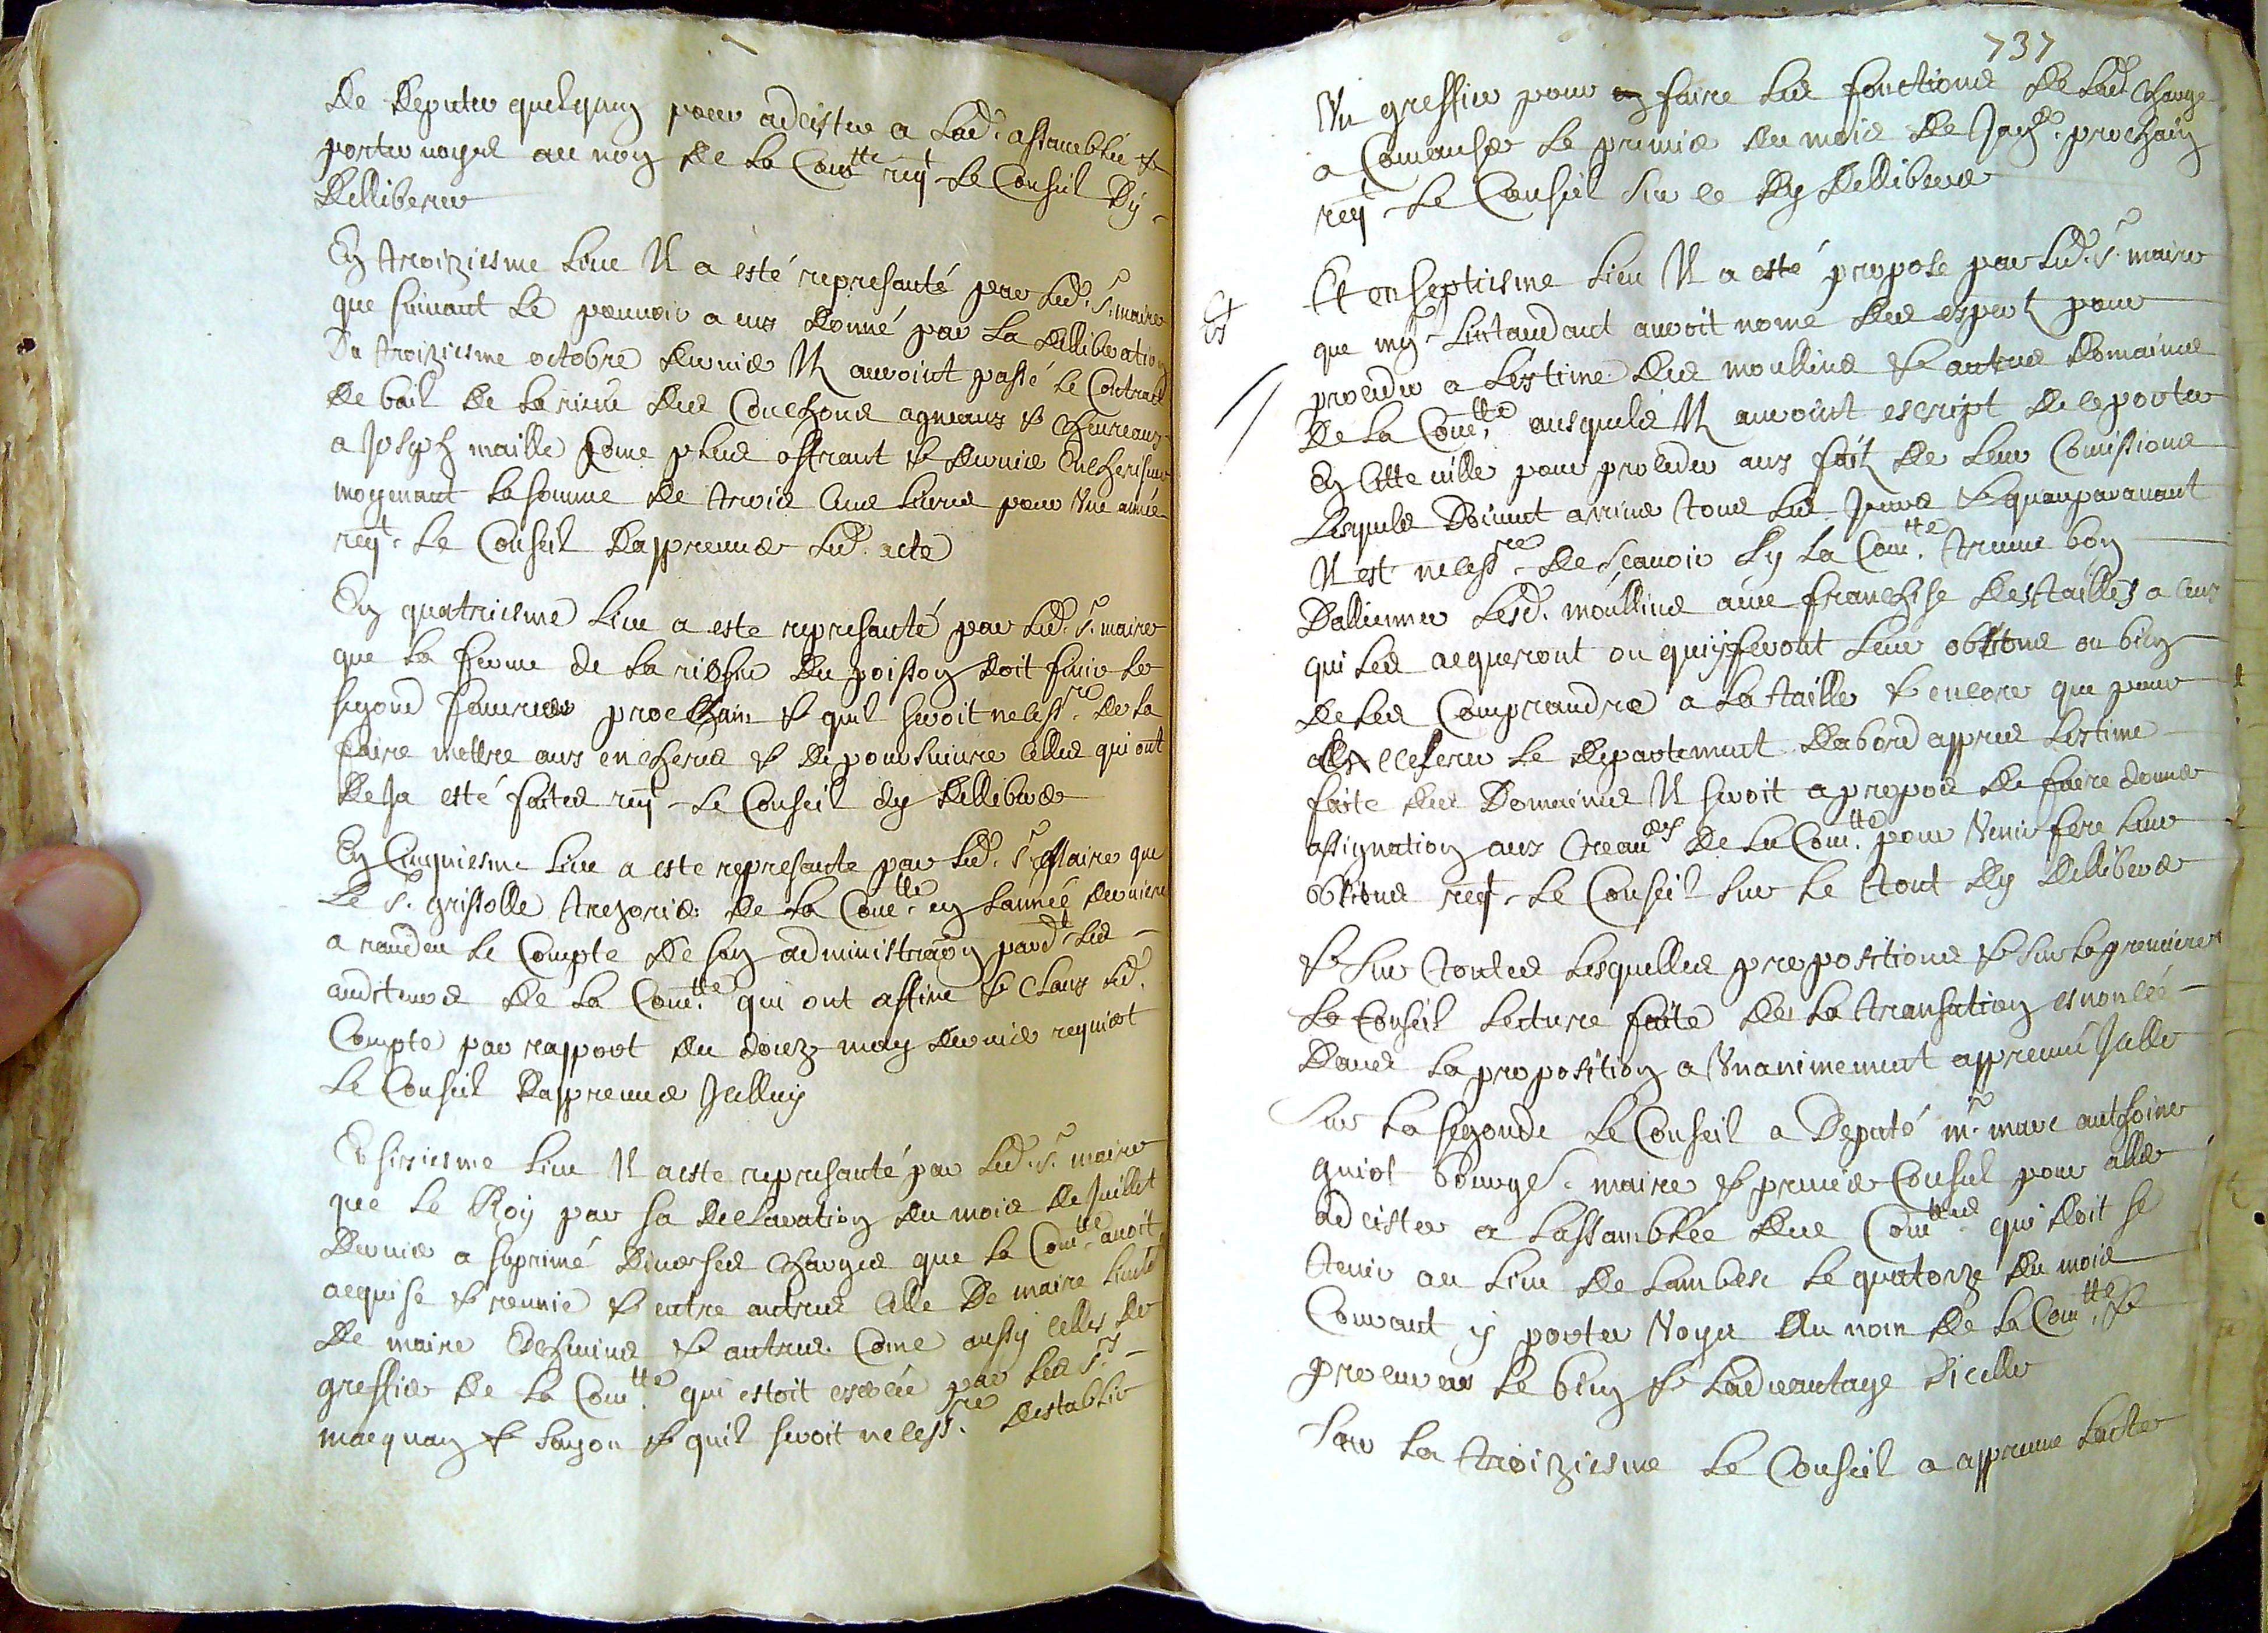 De deputer quelquun pour adcister a lad. assamblée &
porter voyes au nom de la Comtté reqt le Conseil dy
delliberer
En troiziesme lieu Il a esté represanté par led. Sr. maire
que suivant le pouvoir a eux donné par la delliberation
Du troiziesme octobre dernier Ils auroint passé le Contract
de bail de la rieue des Couchons agneaux & chevreaux
a Joseph maille Come plus offrant & dernier encherisseur
moyenant la somme de trois Cens livres pour Une année
reqt. le Conseil dapprouver led. acte
En quatriesme lieu a este represanté par led. Sr. maire
que la ferme de la du poisson doit finir le
segond feuvrier prochain & quil seroit necessre. de la
faire mettre aux encheres & de poursuivre celles qui ont
deja esté faites reqt le Conseil dy delliberer
En Cinquiesme lieu a este represante par led. Sr. Maire que
Le Sr. grissolle trezorier de la Comtté. en lannée derniere
a randeu le Compte de son administraõn pardt les
auditeurs de la Comtté qui ont affiné & Claux led.
Compte par rapport du douze may dernier requiert
le Conseil dapprouver Jcelluy
En sixiesme lieu Il a este represanté par led. Sr. maire
que le Roy par sa declaration du mois de Juillet
dernier a suprimé diverses charges que la Comtté. avoit
acquise & reunie & entre autres Celle De maire lieut
de maire Eschevins & autres Come aussy celles de
greffier de la Comtté. qui estoit exercée par les Srs
macquan & sayon & quil seroit necessre. destablir
737
Un greffier pour en faire les fonctions de lad. Charge
a Comanser le premier du mois de Janver. prochain
reqt le Conseil sur ce dy delliberer
Et en septiesme lieu Il a esté propose par led. Sr. maire
que mgr Lintandant auroit nomé des expertz pour
proceder a lestime des moullins & autres domaines
de la Comtté. ausquels Il auroint escript de ce porter
En Cette ville pour proceder aux faitz de leur Comissions
Lesquels doivent arriver tous les Jours & quauparavant
Il est necessre de scavoir sy la Comtté. treuve bon
Dalliener lesd. moullins avec franchise des tailles a ceux
qui les acqueront ou quiy feront leur obtions ou bien
de les Comprandre a la taille & encore que pour
le departement dabord appres lestime
faite des Domaines Il seroit a propos de faire donner
assignation aux Creanders de la Comtté. pour Venir fere leur
obtions reqt. le Conseil sur le tout dy delliberer
& sur toutes lesquelles propositions & sur la premiere
Le Conseil lecture faite de la transation esnoncée
dans la proposition a Unanimement appreuvé Jcelle
Sur la segonde le Conseil a deputé mr. marc anthoine
guiot bourgs. maire & premier Consul pour aller
adcister a lassamblée des Comttés qui doit se
tenir au lieu de lambesc le quatorze du mois
Courant y porter Voyes Au nom de la Comtté. &
procurer le bien & ladvantage dicelle
Sur la troiziesme le Conseil a appreuve lacte